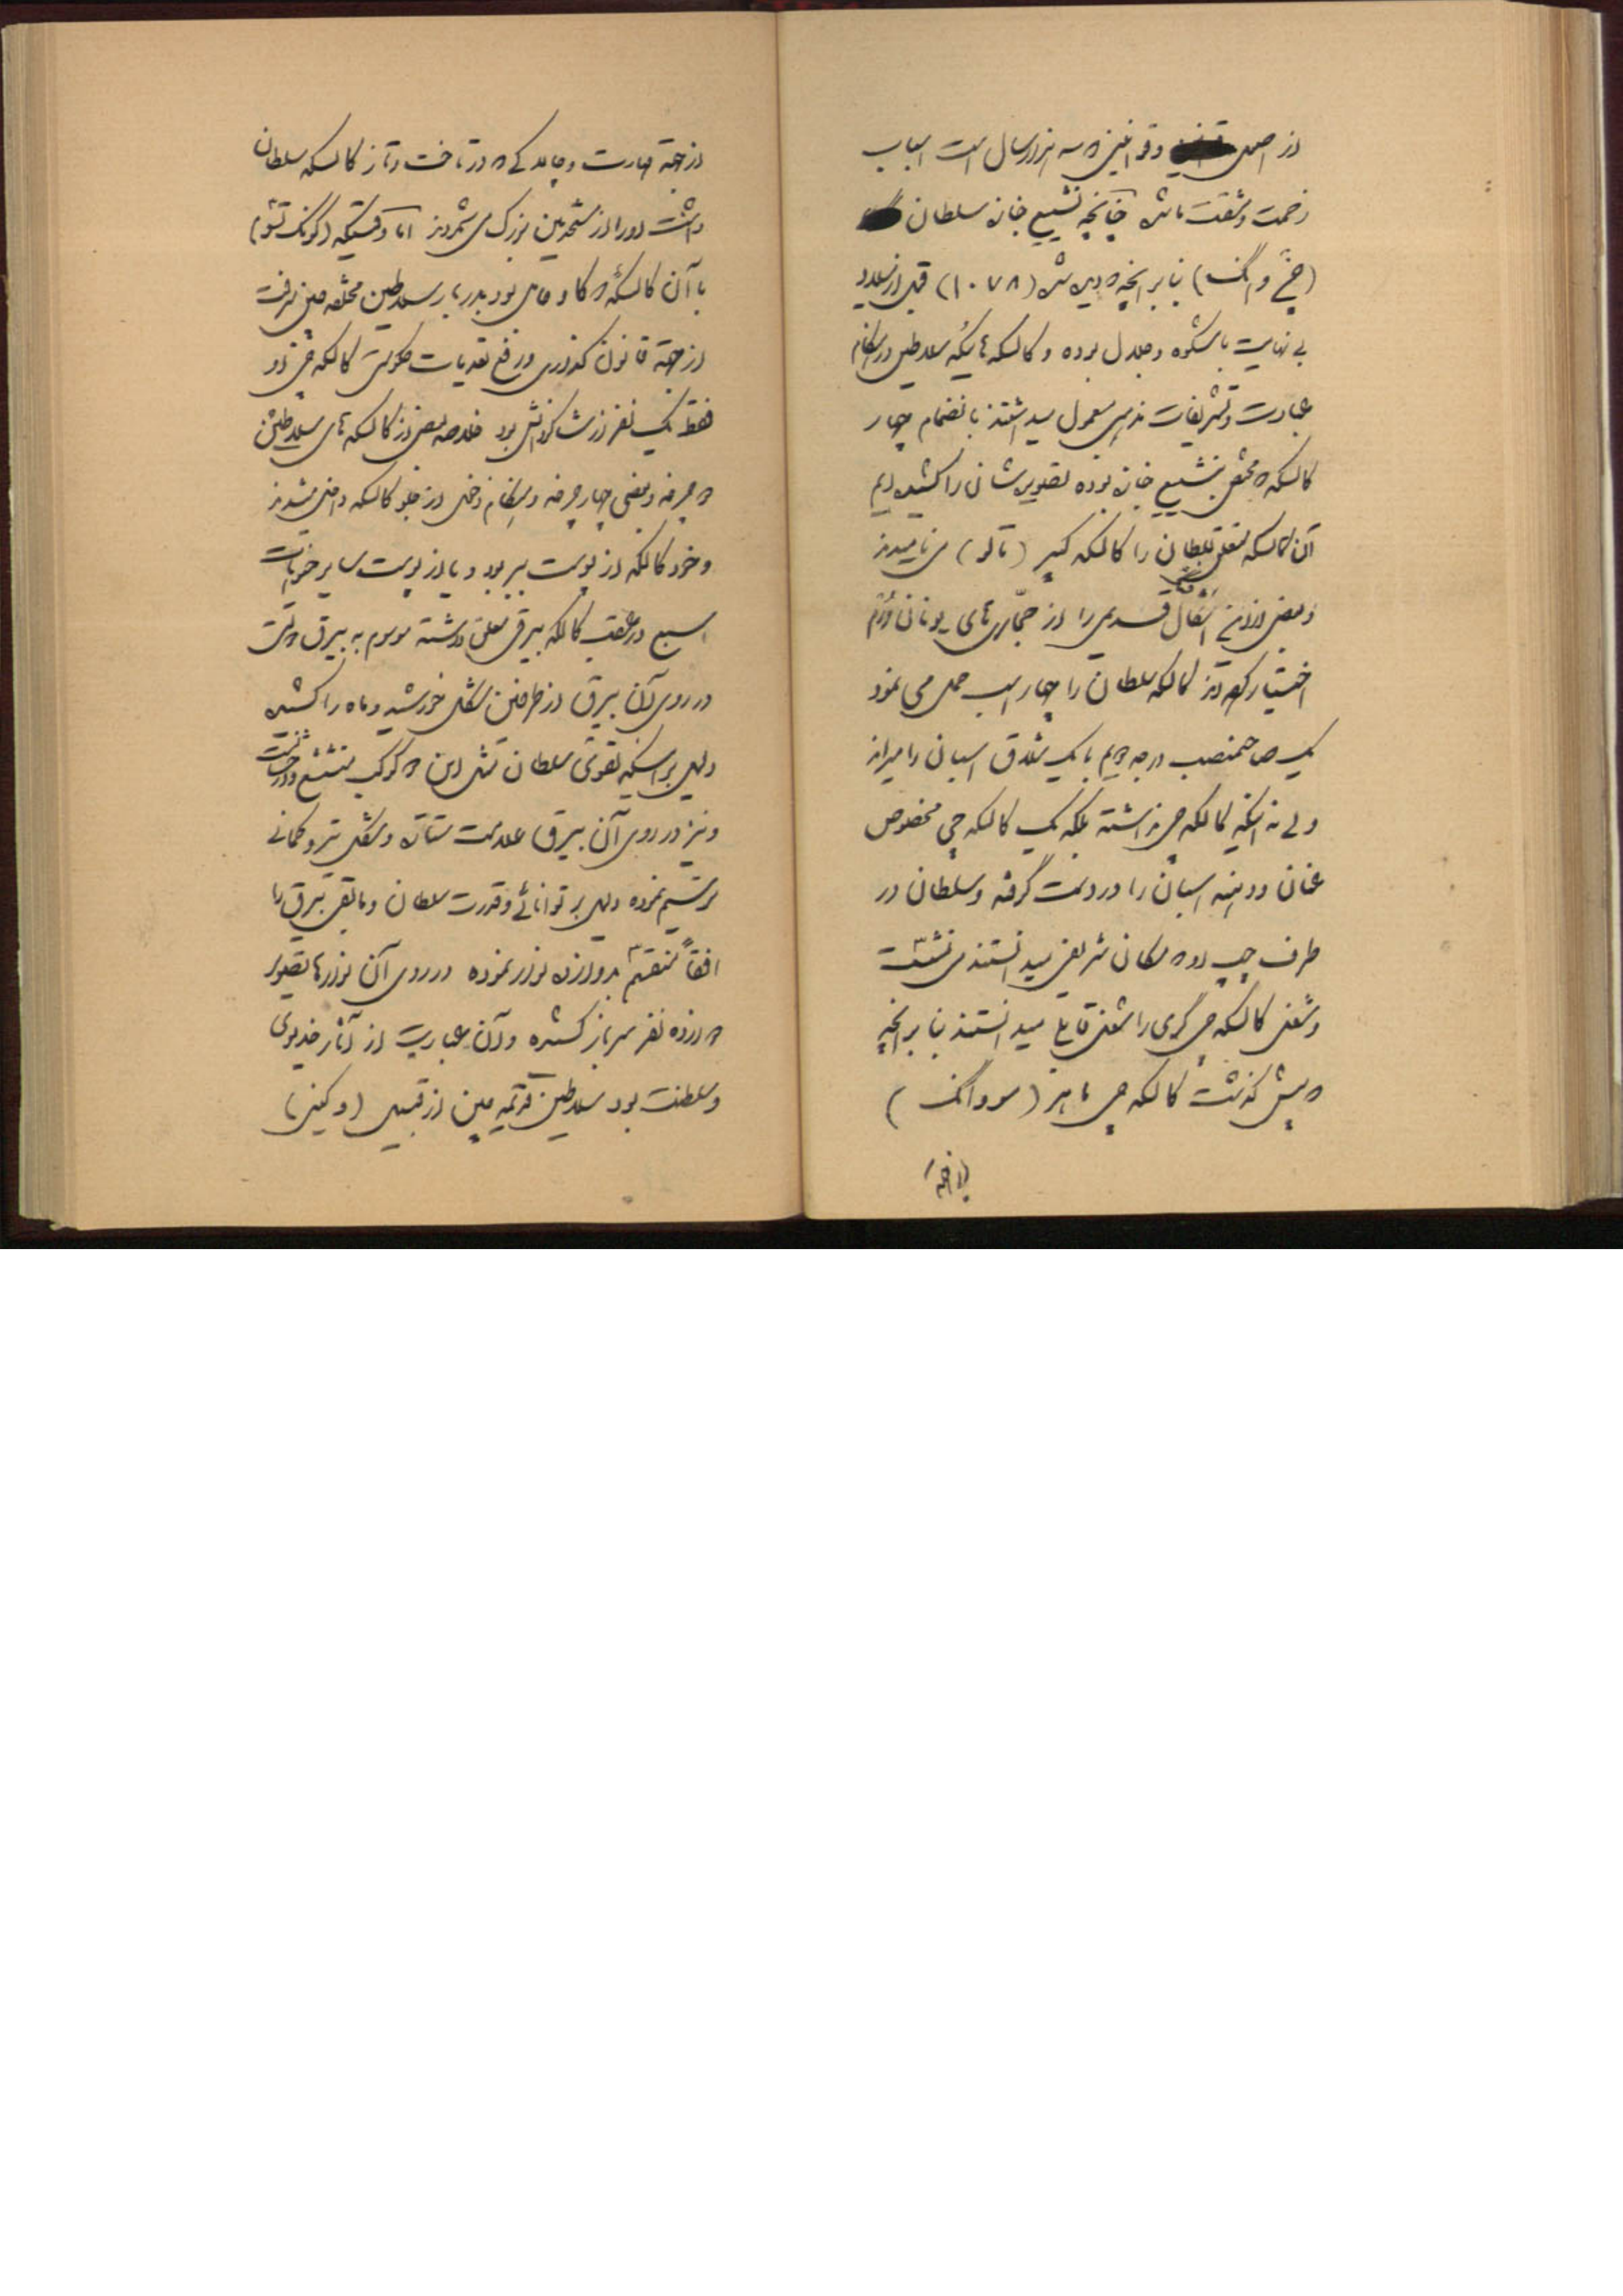 از اصل وقوانین که سه هزار سال است اسباب
زحمت و مشقت ما شده چنانچه تشییع جنازه سلطان
(چنغ وانگ) بنا بر آنچه که دیده شد (۱۰۷۸) قبل از میلاد
بی نهایت با شکوه و جلال بوده و کالسکه هائیکه سلاطین در هنگام
عبادت و تشریفات مذهبی معمول میداشتند بانضمام چهار
کالسکه که مختص بتشییع جنازه بوده تصویرشان را کشیده ایم
آن کالسکه متعلق بسلطان را کالسکه کبیر (تالو) می نامیدند
و بعضی از این اشکال قدیمی را از حجاری های یونانی و رم
اختیار کرده اند کالسکه سلطان را چهار اسب حمل می نمود
یک صاحبمنصب درجه دویم با یک شلاق اسبان را میراند
ولی نه اینکه کالسکه چی نداشته بلکه یک کالسکه چی مخصوص
عنان و دهنه اسبان را در دست گرفته و سلطان در
طرف چپ او که مکان شریفی میدانستند می نشست
و شغل کالسکه چی گری را شغل قابلی میدانستند بنا بر آنچه
که پیش گذشت کالسکه چی ماهر (مووانگ)
از جهة
از جهة مهارت و چابکی که در تاخت و تاز کالسکه سلطان
داشت او را از متجدین بزرگ می شمردند اما وقتیکه (کونگ تسو)
با آن کالسکهٔ که گاو حامل بود بدربار سلاطین مختلفه چین میرفت
از جهة قانون گذاری و رفع تعدیات حکومتی کالسکه چی او
فقط یک نفر از شاگردانش بود خلاصه بعضی از کالسکه های سلاطین
دو چرخه و بعضی چهار چرخه و هنگام دخول از جلو کالسکه داخل میشدند
و خود کالسکه از پوست ببر بود و یا از پوست سایر حیوانات
سبع در عقب کالسکه بیرقی معلق داشته موسوم به بیرق دولت
در روی آن بیرق از طرفین شکل خورشید و ماه را کشیده
دلیل بر اینکه تقوی سلطان مثل این دو کوکب متشعشع و درخشان است
و نیز در روی آن بیرق علامت ستاره و شکل تیر و کمانی
ترسیم نموده دلیل بر توانائی و قدرت سلطان و مابقی بیرق را
افقاً منقسم بدوازده نوار نموده در روی آن نوارها تصویر
دوازده نفر سرباز کشیده و آن عبارت از آثار خدیوی
و سلطنت بود سلاطین قدیمه چین از قبیل (وکینی)